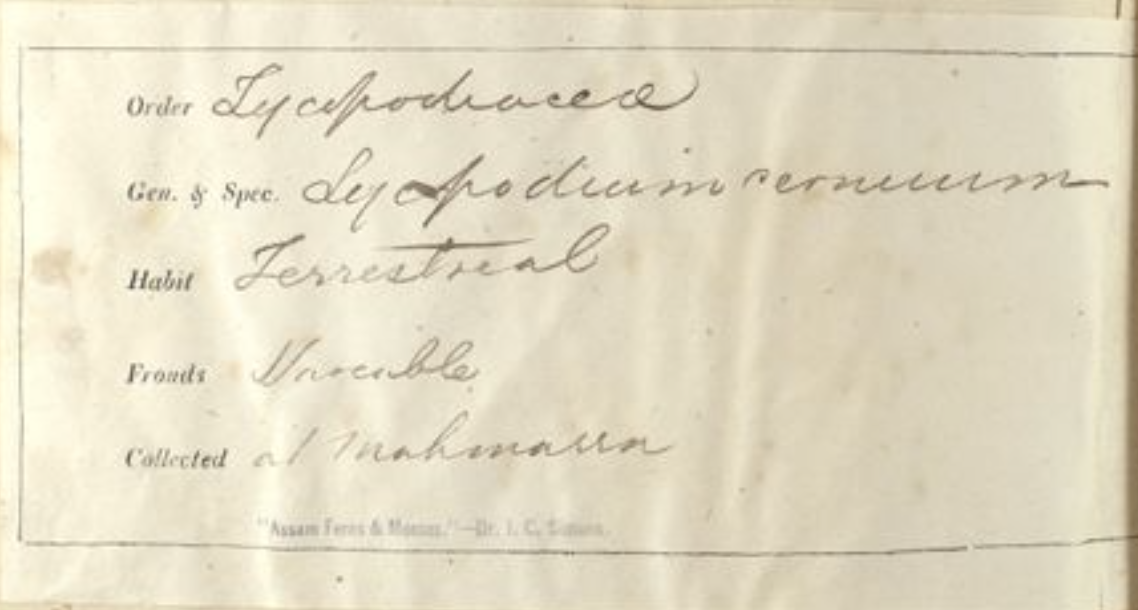 Order Lycopodiaceæ
Gen. & Spec. Lycopodium cernuum
Habit Terrestrial
Fronds Variable
Collected at Mahmarra
"Assam Ferns & Mosses."—Dr. I. C. Simons.